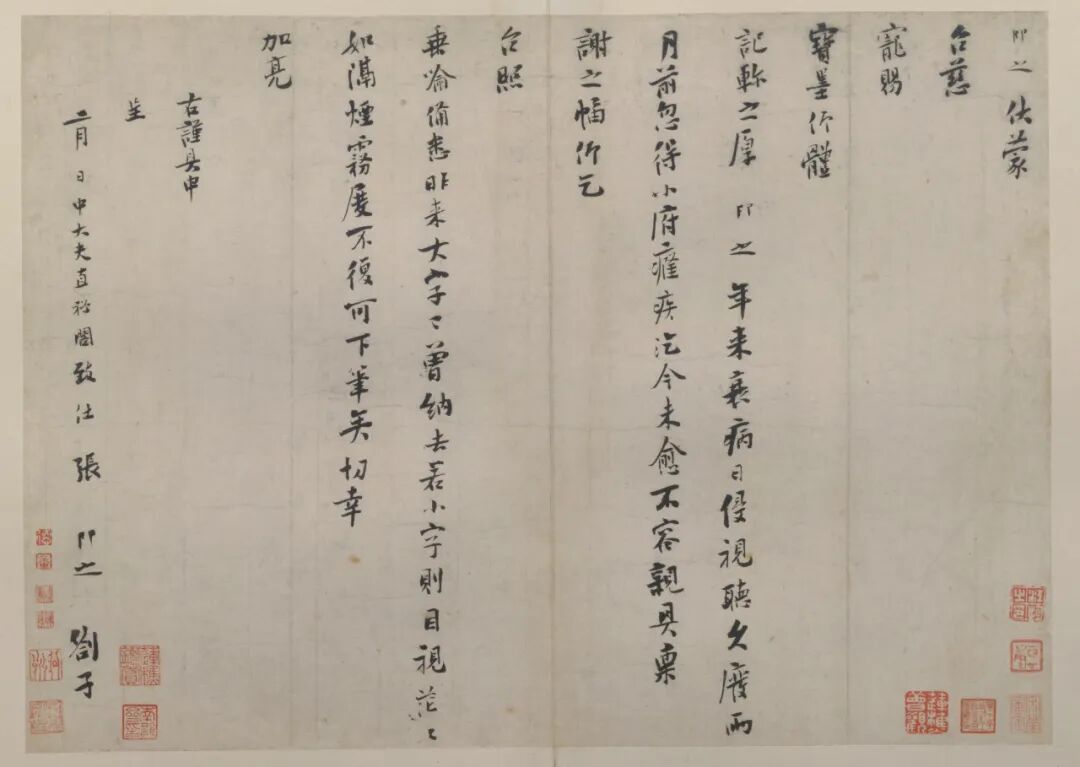 即之 伏蒙
台慈
寵賜
寶墨仰體
記軫之厚 即之 年来衰病日侵視聽久廢兩
月前忽得小府癃疾迄今未愈不容親具稟
謝之幅仰乞
台照
垂喻備悉昨来大字〻曾納去若小字則目視茫〻
如隔煙霧屡不復可下筆矣切幸
加亮
右謹具申
呈
二月 日中大夫直秘閣致仕張 即之 劄子